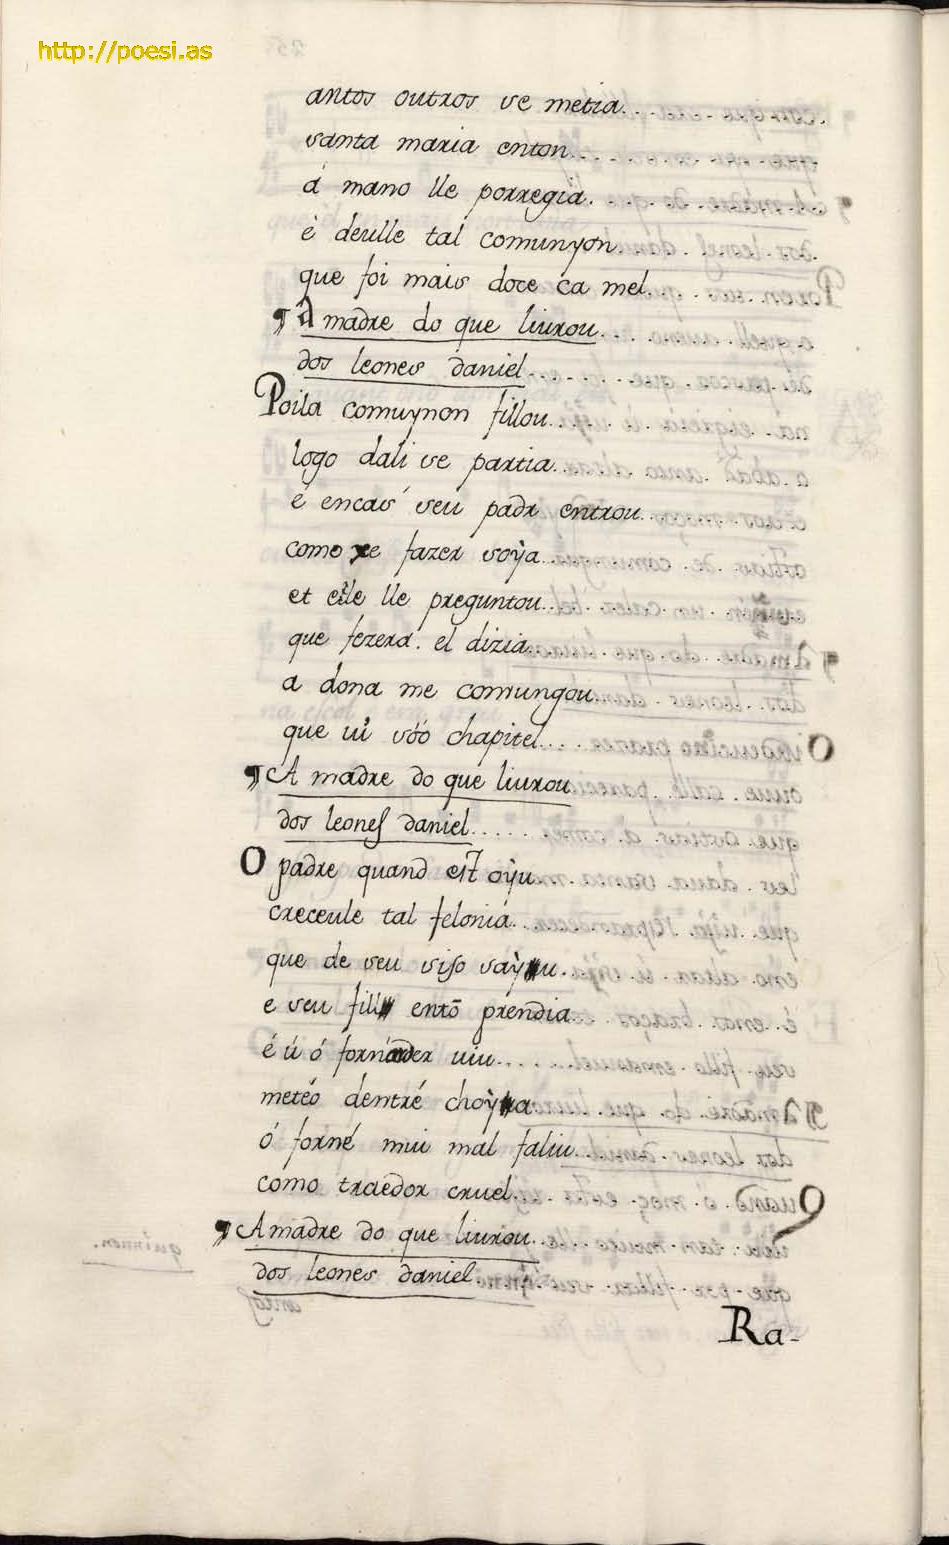 http://poesi.as
antos outros se metia...
santa maria enton.....
á mano lle porregia.
è deulle tal comunyon
que foi mais doce ca mel.
¶ A madre do que liurou...
dos leones daniel...
Poila comuynon fillou..
logo dali se partia..
é encas seu padr entrou..
como xe fazer soÿa..
et elle lle preguntou..
que fezera. el dizia.
a dona me comungou
que ui sóó chapitel....
¶ A madre do que liurou
dos leones daniel......
O padre quand est oÿu.
creceule tal feloniá..
que de seu siso saÿu.
e seu fill entō prendia
é ú ó forn arder uiu......
meteó dentré choÿa
ó forné mui mal faliu..
como traedor cruel.
¶ A madre do que liurou..
dos leones daniel.
Ra-